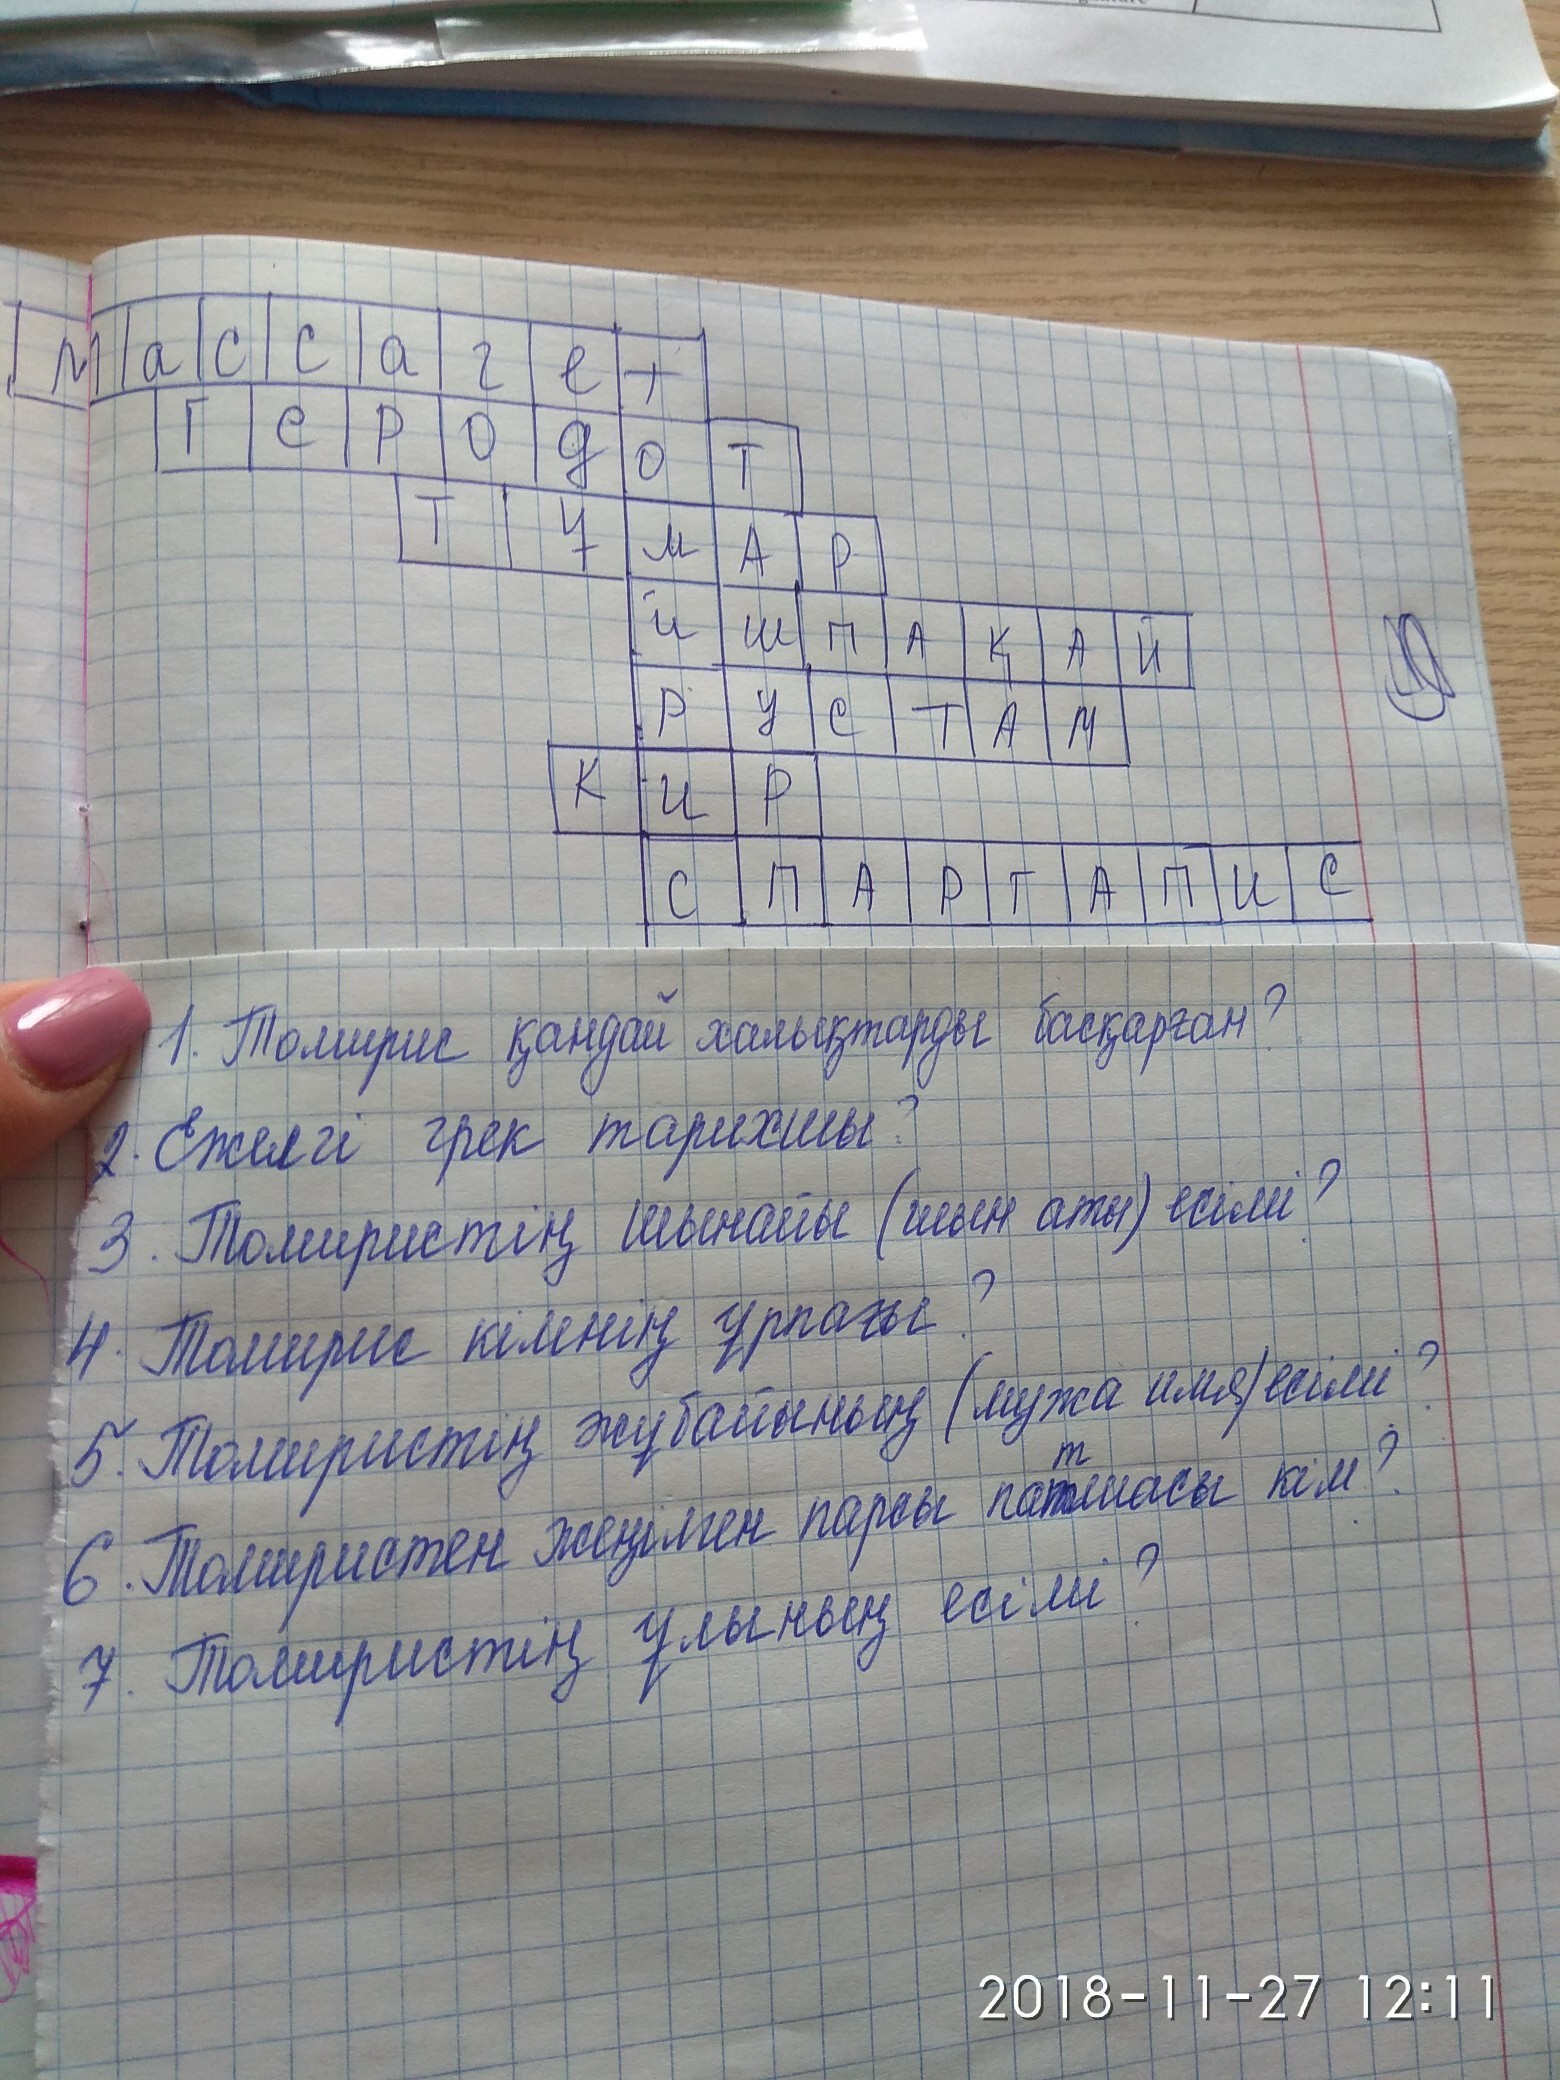 массагет
Геродот
ТУМАР
ИШПАҚАЙ
РУСТАМ
КИР
СПАРГАПИС
1. Томирис қандай халықтарды басқарған?
2. Ежелгі грек тарихшы?
3. Томиристің шынайы (шын аты) есімі?
4. Томирис кімнің ұрпағы?
5. Томиристің жұбайының (мужа имя) есімі?
6. Томиристен жеңілген парсы патшасы кім?
7. Томиристің ұлының есімі?
2018-11-27 12:11